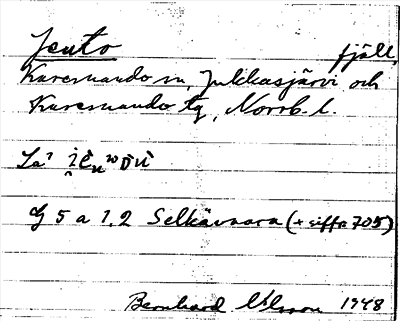 Jeuto fjäll,
Karesuando sn, Jukkasjärvi och
Karesuando tg, Norrb. l.
La?
G 5 a 1,2 Selkävaara (+ siffr 705)
Bernhard Nilsson 1948